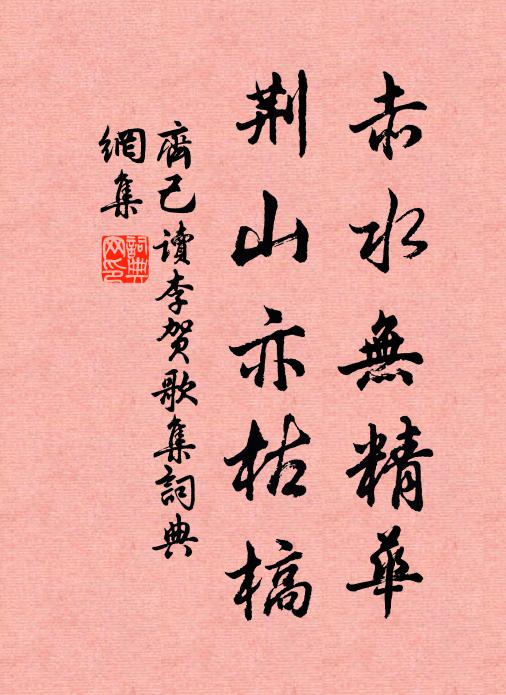 赤水無精華
荆山亦枯槁
齊己讀李賀歌集詞典
網集
詞典網印